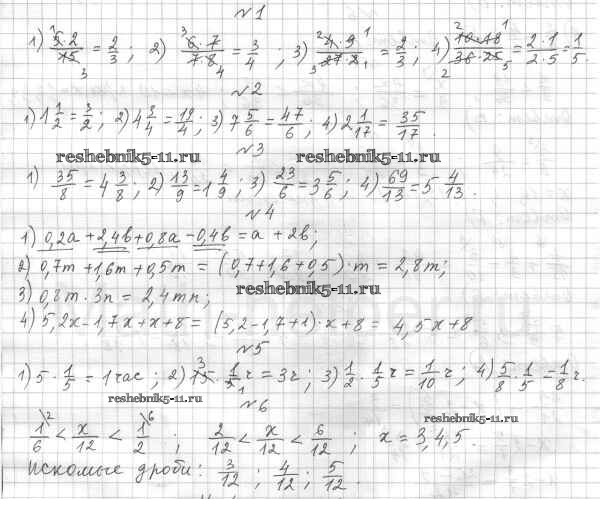 №1
1) 5·2/15 = 2/3; 2) 6·7/7·8 = 3/4; 3) 4·9/27·2 = 2/3; 4) 10·18/36·25 = 2·1/2·5 = 1/5.
№2
1) 1 1/2 = 3/2; 2) 4 3/4 = 19/4; 3) 7 5/6 = 47/6; 4) 2 1/17 = 35/17.
reshebnik5-11.ru reshebnik5-11.ru
№3
1) 35/8 = 4 3/8; 2) 13/9 = 1 4/9; 3) 23/6 = 3 5/6; 4) 69/13 = 5 4/13.
№4
1) 0,2a + 2,4b + 0,8a - 0,4b = a + 2b;
2) 0,7m + 1,6m + 0,5m = (0,7+1,6+0,5)·m = 2,8m;
reshebnik5-11.ru
3) 0,8m · 3n = 2,4mn;
4) 5,2x - 1,7x + x + 8 = (5,2-1,7+1)·x + 8 = 4,5x + 8.
№5
1) 5 · 1/5 = 1 час; 2) 15 · 1/5 ч = 3ч; 3) 1/2 · 1/5 ч = 1/10 ч; 4) 5/8 · 1/5 = 1/8 ч.
reshebnik5-11.ru
№6
reshebnik5-11.ru
1/6 < x/12 < 1/2; 2/12 < x/12 < 6/12; x = 3,4,5.
Искомые дроби: 3/12; 4/12; 5/12.